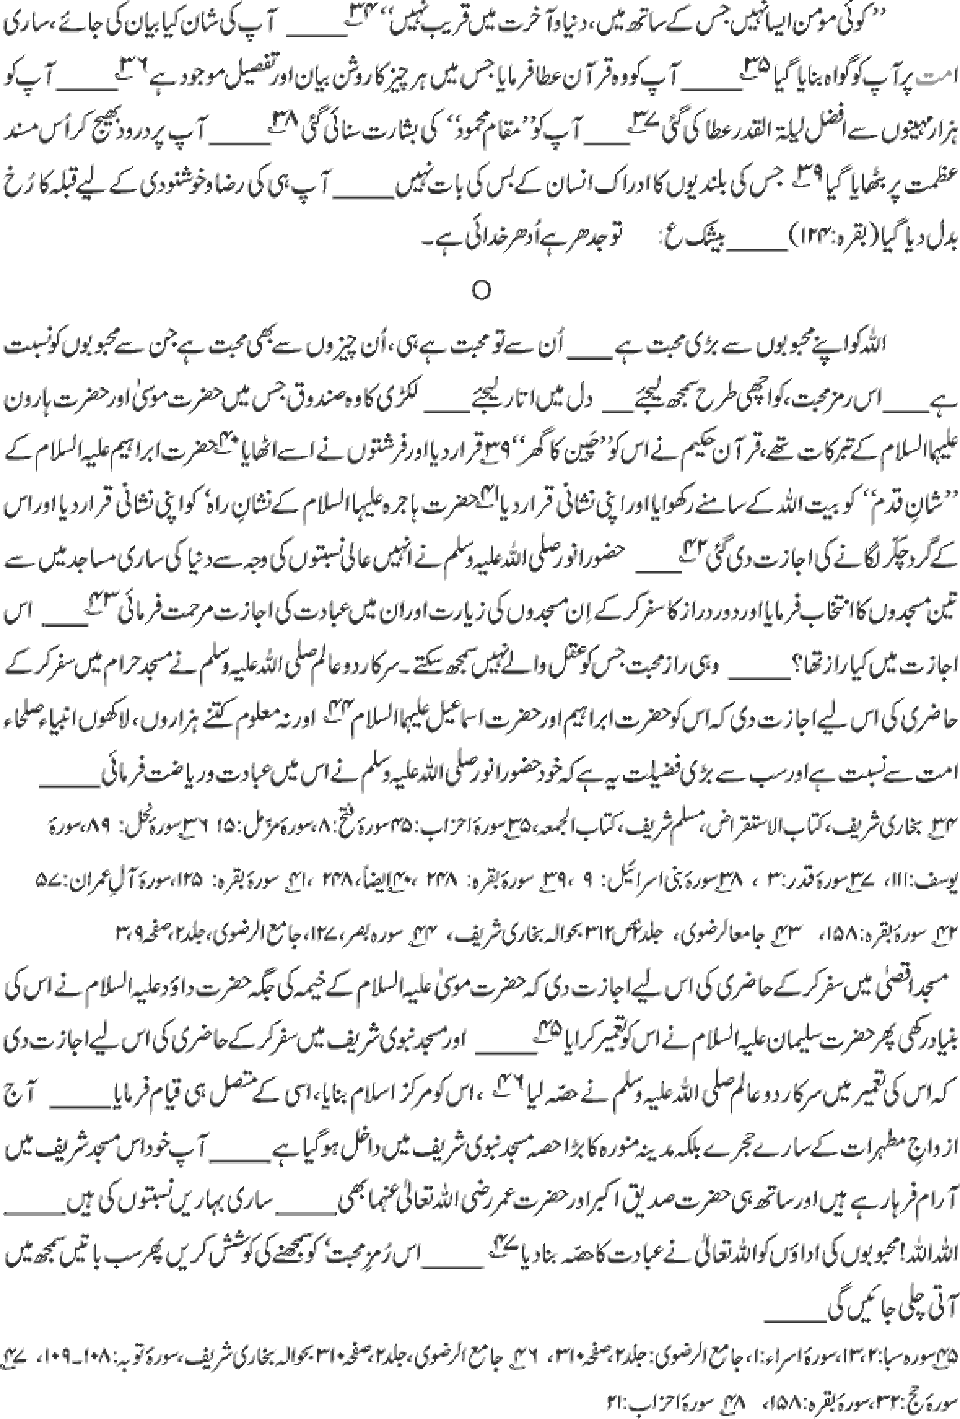 ”کوئی مومن ایسا نہیں جس کے ساتھ میں، دنیا و آخرت میں قریب نہیں“ ۳۴؎ ____ آپ کی شان کیا بیان کی جائے، ساری
امت پر آپ کو گواہ بنایا گیا ۳۵؎ ____ آپ کو وہ قرآن عطا فرمایا جس میں ہر چیز کا روشن بیان اور تفصیل موجود ہے ۳۶؎ ____ آپ کو
ہزار مہینوں سے افضل لیلۃ القدر عطا کی گئی ۳۷؎ ____ آپ کو ”مقام محمود“ کی بشارت سنائی گئی ۳۸؎ ____ آپ پر درود بھیج کر اُس مسند
عظمت پر بٹھایا گیا ۳۹؎ جس کی بلندیوں کا ادراک انسان کے بس کی بات نہیں ____ آپ ہی کی رضا و خوشنودی کے لیے قبلہ کا رُخ
بدل دیا گیا (بقرہ: ۱۲۴) ____ بیشک ع: تو جدھر ہے اُدھر خدائی ہے۔
O
اللہ کو اپنے محبوبوں سے بڑی محبت ہے ____ اُن سے تو محبت ہے ہی، اُن چیزوں سے بھی محبت ہے جن سے محبوبوں کو نسبت
ہے ____ اس رمز محبت، کو اچھی طرح سمجھ لیجئے ____ دل میں اتار لیجئے ____ لکڑی کا وہ صندوق جس میں حضرت موسیٰ اور حضرت ہارون
علیہما السلام کے تبرکات تھے، قرآن حکیم نے اس کو ”چین کا گھر“ ۳۹؎ قرار دیا اور فرشتوں نے اسے اٹھایا ۴۰؎ حضرت ابراہیم علیہ السلام کے
”شانِ قدم“ کو بیت اللہ کے سامنے رکھوایا اور اپنی نشانی قرار دیا ۴۱؎ حضرت ہاجرہ علیہا السلام کے نشانِ راہ‘ کو اپنی نشانی قرار دیا اور اس
کے گرد چکّر لگانے کی اجازت دی گئی ۴۲؎ ____ حضور انور صلی اللہ علیہ وسلم نے انہیں عالی نسبتوں کی وجہ سے دنیا کی ساری مساجد میں سے
تین مسجدوں کا انتخاب فرمایا اور دور دراز کا سفر کر کے اِن مسجدوں کی زیارت اور ان میں عبادت کی اجازت مرحمت فرمائی ۴۳؎ ____ اس
اجازت میں کیا راز تھا؟ ____ وہی راز محبت جس کو عقل والے نہیں سمجھ سکتے۔ سرکار دو عالم صلی اللہ علیہ وسلم نے مسجد حرام میں سفر کر کے
حاضری کی اس لیے اجازت دی کہ اس کو حضرت ابراہیم اور حضرت اسماعیل علیہما السلام ۴۴؎ اور نہ معلوم کتنے ہزاروں، لاکھوں انبیاء صلحاء
امت سے نسبت ہے اور سب سے بڑی فضیلت یہ ہے کہ خود حضور انور صلی اللہ علیہ وسلم نے اس میں عبادت و ریاضت فرمائی ____
۳۴؎ بخاری شریف، کتاب الاستقراض، مسلم شریف، کتاب الجمعہ، ۳۵؎ سورۂ احزاب: ۴۵ سورۂ فتح: ۸، سورۂ مزمل: ۱۵ ۳۶؎ سورۂ نحل: ۸۹، سورۂ
یوسف: ۱۱۱، ۳۷؎ سورۂ قدر: ۳ ، ۳۸؎ سورۂ بنی اسرائیل: ۹ ، ۳۹؎ سورۂ بقرہ: ۲۴۸ ،۴۰؎ ایضاً، ۲۴۸ ،۴۱؎ سورۂ بقرہ: ۱۲۵، سورۂ آلِ عمران: ۵۷
۴۲؎ سورۂ بقرہ: ۱۵۸، ۴۳؎ جامعا لرضوی، جلد۲ص ۳۱۲ بحوالہ بخاری شریف، ۴۴؎ سورہ بصر، ۱۲۷، جامع الرضوی، جلد۲، صفحہ ۳،۹
مسجد اقصیٰ میں سفر کر کے حاضری کی اس لیے اجازت دی کہ حضرت موسیٰ علیہ السلام کے خیمہ کی جگہ حضرت داؤد علیہ السلام نے اس کی
بنیاد رکھی پھر حضرت سلیمان علیہ السلام نے اس کو تعمیر کرایا ۴۵؎ ____ اور مسجد نبوی شریف میں سفر کر کے حاضری کی اس لیے اجازت دی
کہ اس کی تعمیر میں سرکار دو عالم صلی اللہ علیہ وسلم نے حصّہ لیا ۴۶؎ ، اس کو مرکز اسلام بنایا، اسی کے متصل ہی قیام فرمایا ____ آج
ازواجِ مطہرات کے سارے حجرے بلکہ مدینہ منورہ کا بڑا حصہ مسجد نبوی شریف میں داخل ہو گیا ہے ____ آپ خود اس مسجد شریف میں
آرام فرما رہے ہیں اور ساتھ ہی حضرت صدیق اکبر اور حضرت عمر رضی اللہ تعالیٰ عنہما بھی ____ ساری بہاریں نسبتوں کی ہیں ____
اللہ اللہ! محبوبوں کی اداؤں کو اللہ تعالیٰ نے عبادت کا حصّہ بنا دیا ۴۷؎ ____ اس رُمزِ محبت‘ کو سمجھنے کی کوشش کریں پھر سب باتیں سمجھ میں
آتی چلی جائیں گی ____
۴۵؎ سورہ سبا: ۱۳،۲، سورۂ اسراء: ۱، جامع الرضوی: جلد۲، صفحہ ۳۱۰، ۴۶؎ جامع الرضوی، جلد۲، صفحہ ۳۱۰ بحوالہ بخاری شریف، سورۂ توبہ: ۱۰۸۔۱۰۹، ۴۷؎
سورۂ حج: ۳۲، سورۂ بقرہ: ۱۵۸، ۴۸؎ سورۂ احزاب: ۲۱